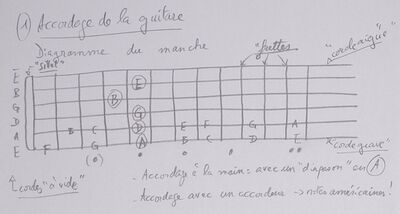 1) Accordage de la guitare
Diagramme du manche
"frettes"
"corde aiguë"
"sillet"
E
B
G
D
A
E
E
B
G
B C D E F G A
F G A B C D E
"corde grave"
cordes "à vide"
- Accordage à la main : avec un "diapason" en A
- Accordage avec un accordeur → notes américaines !